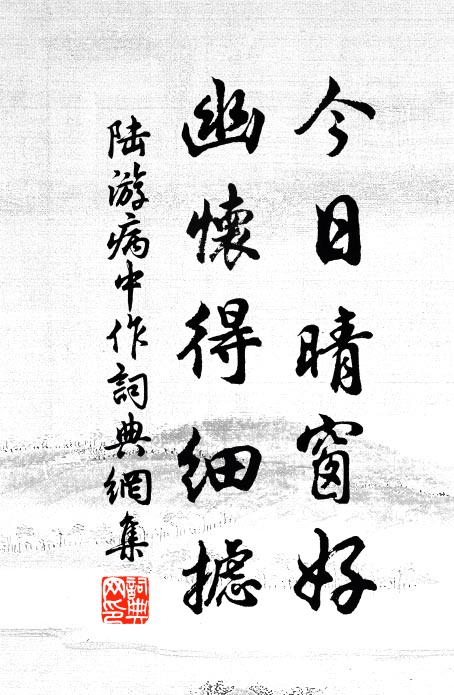 今日晴窗好
幽懷得細攄
陆游病中作詞典網集
詞典网印